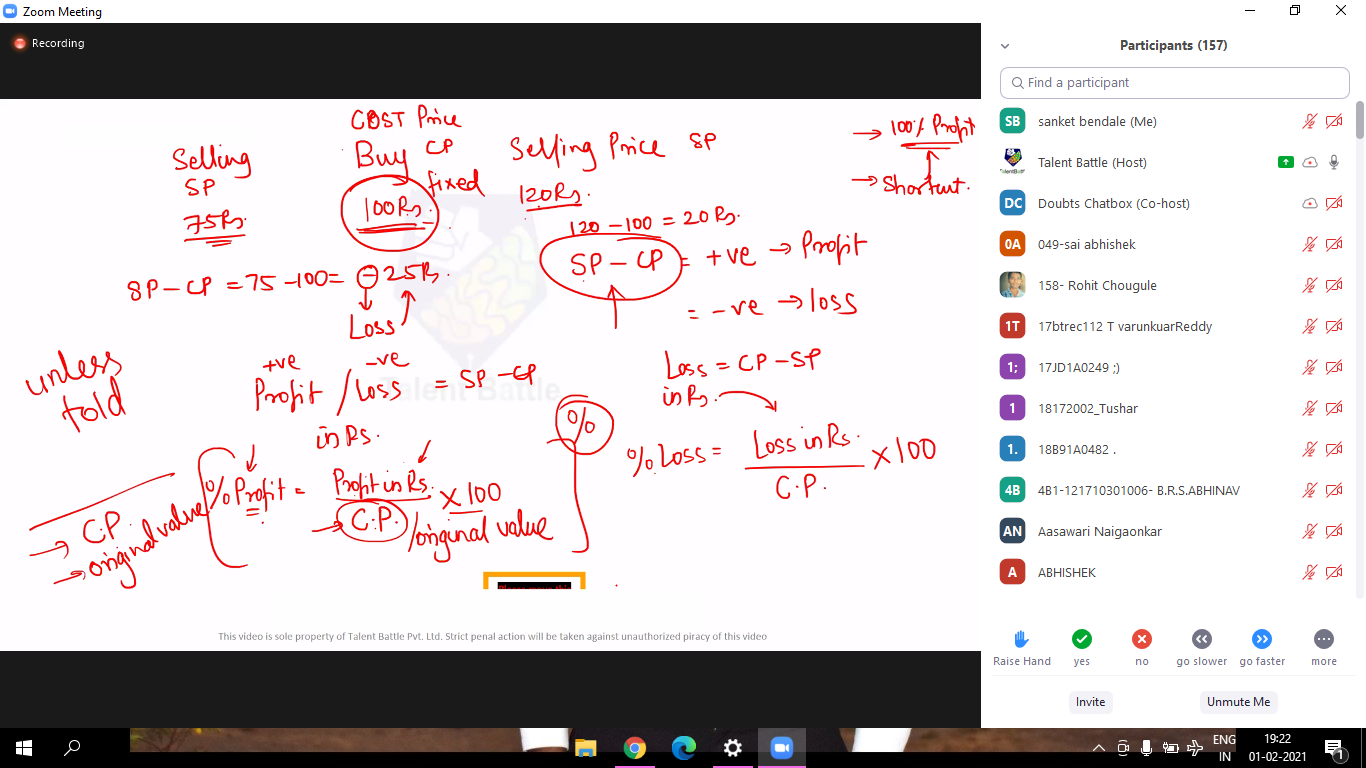 Zoom Meeting
Recording
COST Price
Buy CP
fixed
100Rs.
Selling
SP
75Rs.
Selling Price SP
120Rs.
120 - 100 = 20 Rs.
→ 100% Profit
→ Shortcut.
SP - CP = 75 - 100 = - 25Rs.
Loss
SP - CP = +ve → Profit
= -ve → loss
unless
told
+ve -ve
Profit / Loss = SP - CP
in Rs.
Loss = CP - SP
in Rs.
%
% Loss = Loss in Rs. × 100
C.P.
% Profit = Profit in Rs. × 100
→ C.P. / original value
C.P.
→ original value
Talent Battle
This video is sole property of Talent Battle Pvt. Ltd. Strict penal action will be taken against unauthorized piracy of this video
Participants (157)
Find a participant
SB sanket bendale (Me)
Talent Battle (Host)
DC Doubts Chatbox (Co-host)
0A 049-sai abhishek
158- Rohit Chougule
1T 17btrec112 T varunkuarReddy
1; 17JD1A0249 ;)
1 18172002_Tushar
1. 18B91A0482 .
4B 4B1-121710301006- B.R.S.ABHINAV
AN Aasawari Naigaonkar
A ABHISHEK
Raise Hand yes no go slower go faster more
Invite Unmute Me
ENG
IN
19:22
01-02-2021
1